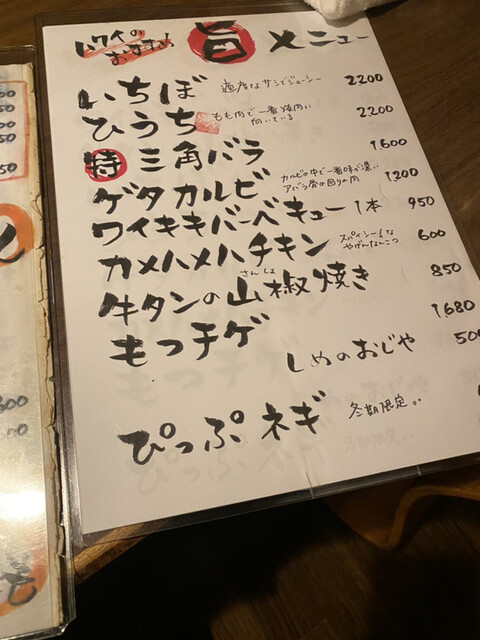 ハワイの
おすすめ
旨 メニュー
いちぼ 適度なサシでジューシー 2200
ひうち もも肉で一番焼肉に向いている 2200
特 三角バラ 1600
ゲタカルビ カルビの中で一番味が濃い アバラ骨の回りの肉 1200
ワイキキバーベキュー 1本 950
カメハメハチキン スパイシーな やげんなんこつ 600
牛タンの山椒焼き さんしょ 850
もつチゲ 1680
しめのおじや 500
ぴっぷネギ 冬期限定..
50
50
50
600